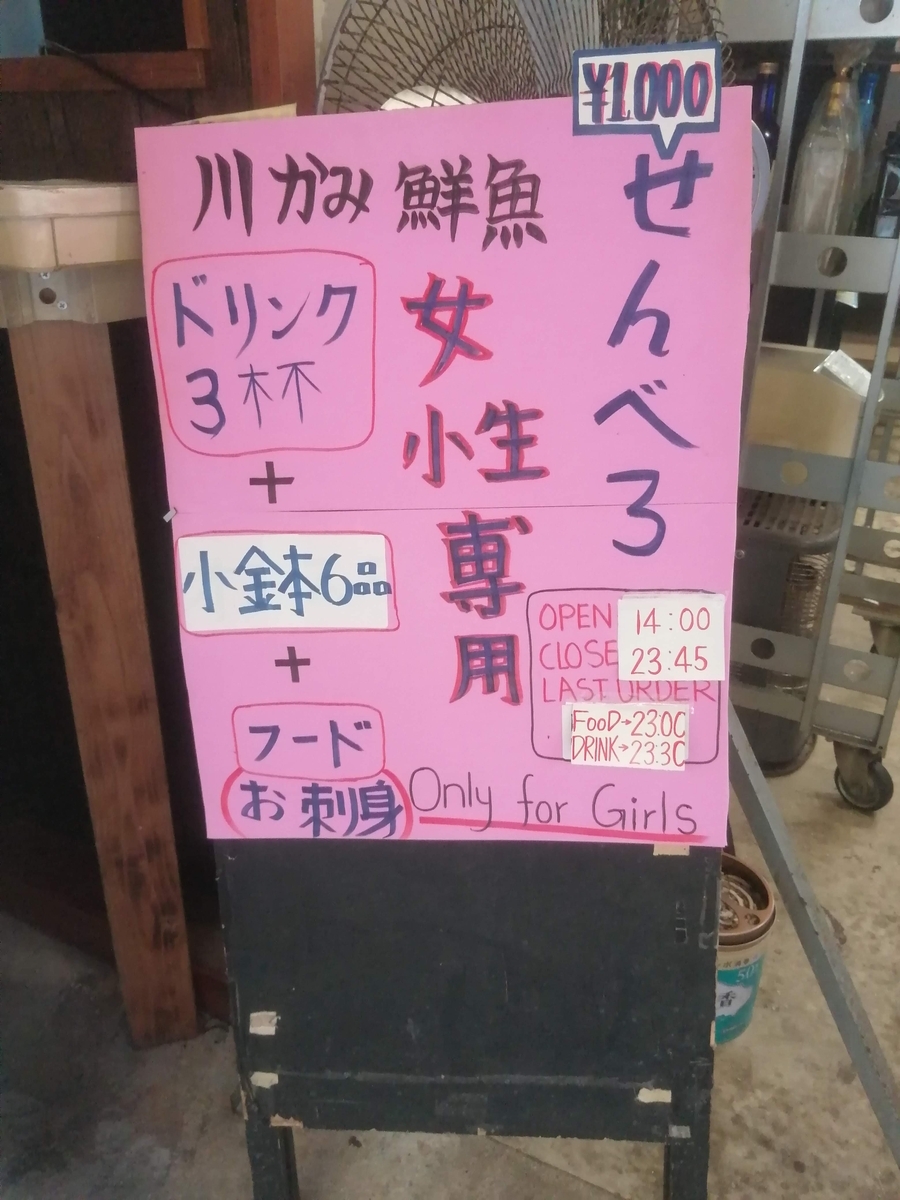 ¥1,000
せんべろ
川かみ鮮魚
女性専用
ドリンク
3杯
+
小鉢6品
+
フード
お刺身
OPEN 14:00
CLOSE 23:45
LAST ORDER
FOOD→23:00
DRINK→23:30
Only for Girls